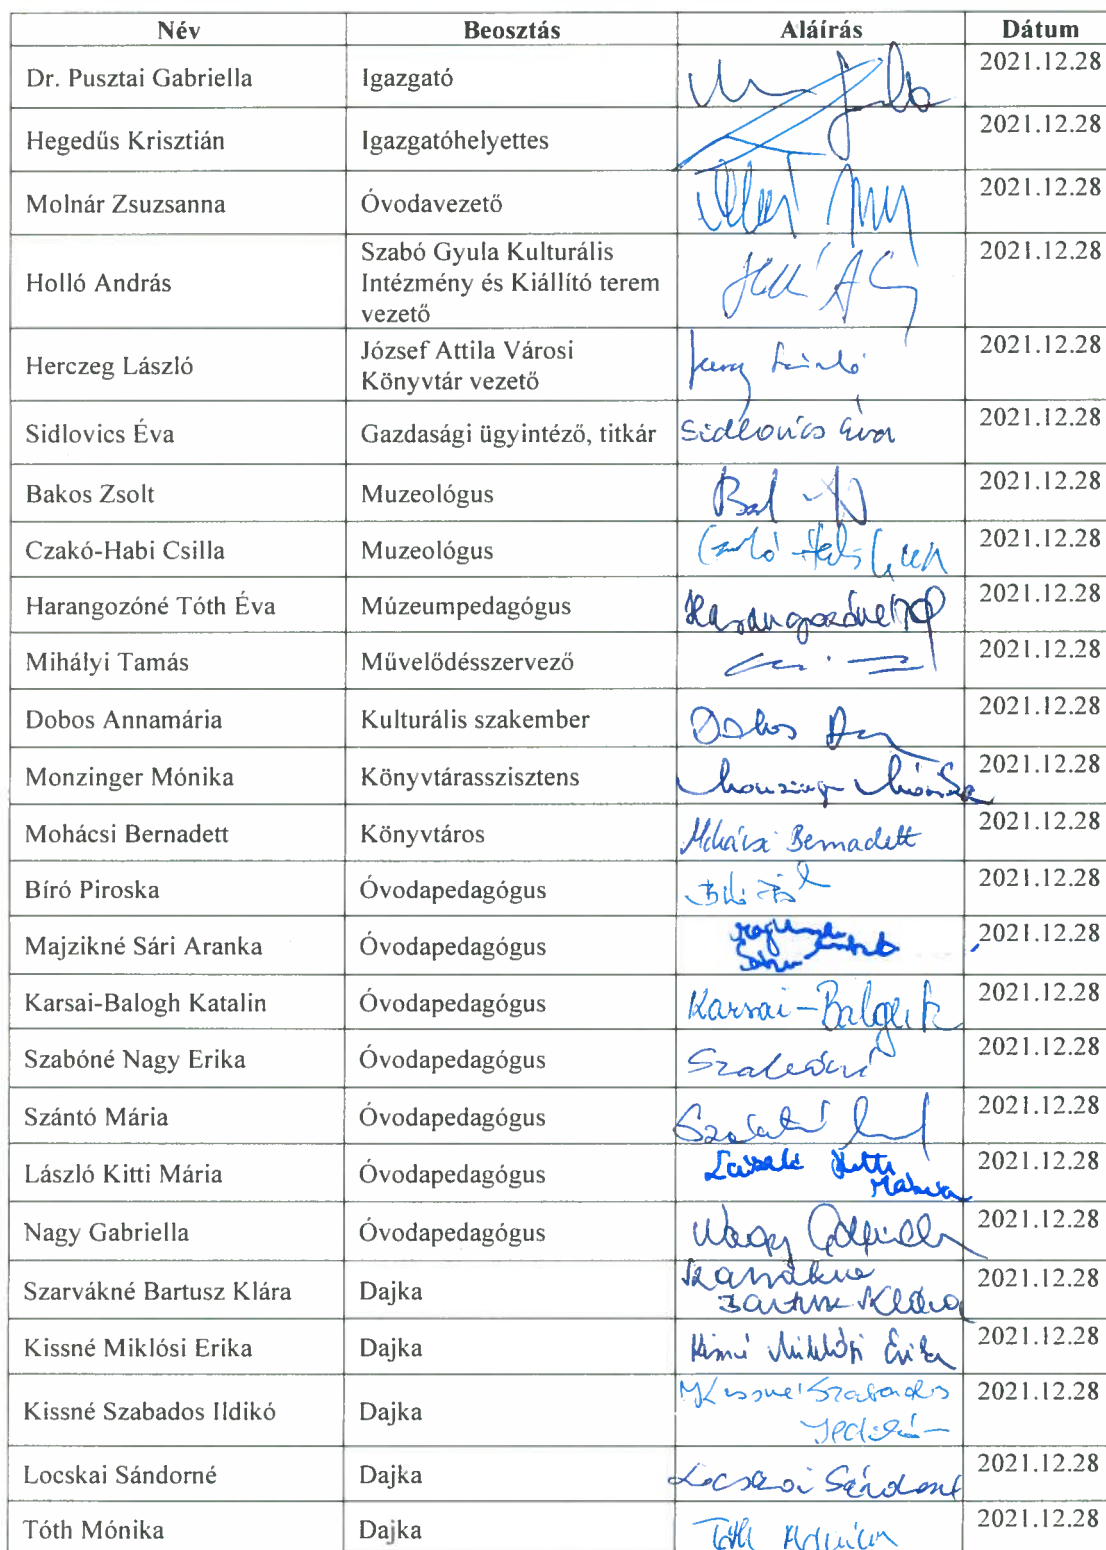 Név Beosztás Aláírás Dátum
Dr. Pusztai Gabriella Igazgató 2021.12.28
Hegedűs Krisztián Igazgatóhelyettes 2021.12.28
Molnár Zsuzsanna Óvodavezető 2021.12.28
Holló András Szabó Gyula Kulturális
Intézmény és Kiállító terem
vezető 2021.12.28
Herczeg László József Attila Városi
Könyvtár vezető 2021.12.28
Sidlovics Éva Gazdasági ügyintéző, titkár Sidlovics Éva 2021.12.28
Bakos Zsolt Muzeológus 2021.12.28
Czakó-Habi Csilla Muzeológus 2021.12.28
Harangozóné Tóth Éva Múzeumpedagógus Harangozóné 2021.12.28
Mihályi Tamás Művelődésszervező 2021.12.28
Dobos Annamária Kulturális szakember Dobos 2021.12.28
Monzinger Mónika Könyvtárasszisztens Monzinger Mónika 2021.12.28
Mohácsi Bernadett Könyvtáros Mohácsi Bernadett 2021.12.28
Bíró Piroska Óvodapedagógus 2021.12.28
Majzikné Sári Aranka Óvodapedagógus 2021.12.28
Karsai-Balogh Katalin Óvodapedagógus Karsai-Balogh K 2021.12.28
Szabóné Nagy Erika Óvodapedagógus Szabóné 2021.12.28
Szántó Mária Óvodapedagógus 2021.12.28
László Kitti Mária Óvodapedagógus László Kitti
Mária 2021.12.28
Nagy Gabriella Óvodapedagógus Nagy Gabriella 2021.12.28
Szarvákné Bartusz Klára Dajka Szarvákné
Bartusz Klára 2021.12.28
Kissné Miklósi Erika Dajka Kissné Miklósi Erika 2021.12.28
Kissné Szabados Ildikó Dajka Kissné Szabados
Ildikó 2021.12.28
Locskai Sándorné Dajka Locskai Sándorné 2021.12.28
Tóth Mónika Dajka Tóth Mónika 2021.12.28